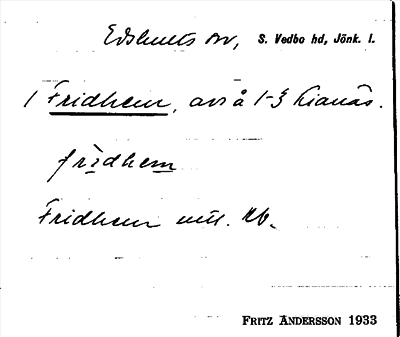 Edshults sn, S. Vedbo hd, Jönk. l.
1 Fridhem, avs å 1-3
fridhem
Fridhem enl. Kb.
FRITZ ANDERSSON 1933